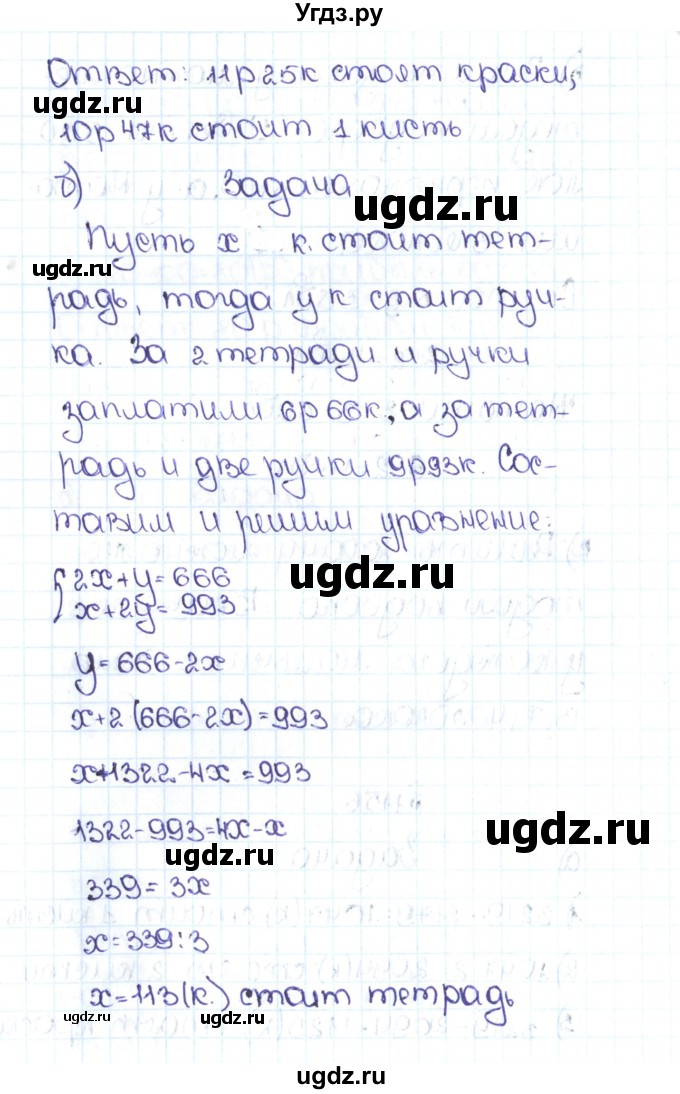 Угдз.ру
Ответ: 11р 25к стоят краски,
ugdz.ru
10р 47к стоит 1 кисть
б) Задача
ugdz.ru
Пусть x к. стоит тет-
ugdz.ru
радь, тогда у к стоит руч-
ка. За 2 тетради и ручки
заплатили 6р 66к, а за тет-
ugdz.ru
радь и две ручки 9р93к. Сос-
тавим и решим уравнение:
ugdz.ru
{2x+y=666
x+2y=993
y=666-2x
x+2(666-2x)=993
x+1322-4x=993
1322-993=4x-x
ugdz.ru
ugdz.ru
339=3x
x=339:3
x=113(к.) стоит тетрадь
ugdz.ru
ugdz.ru
ugdz.ru